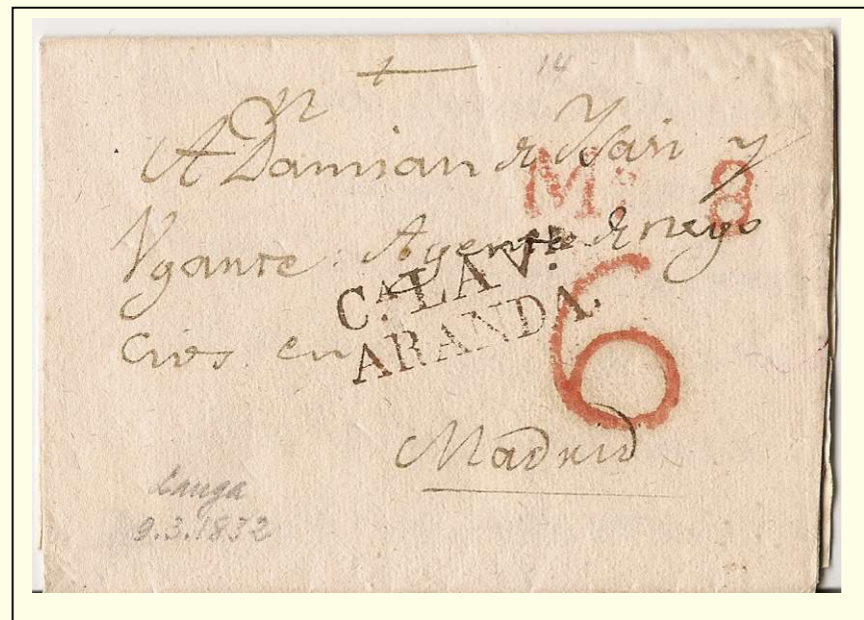 14
A Dn Damian de Ysari y
Ms 8
Ygante Agente de nego
cios en
Ca. LA V.A
ARANDA.
6
Madrid
Langa
9.3.1832